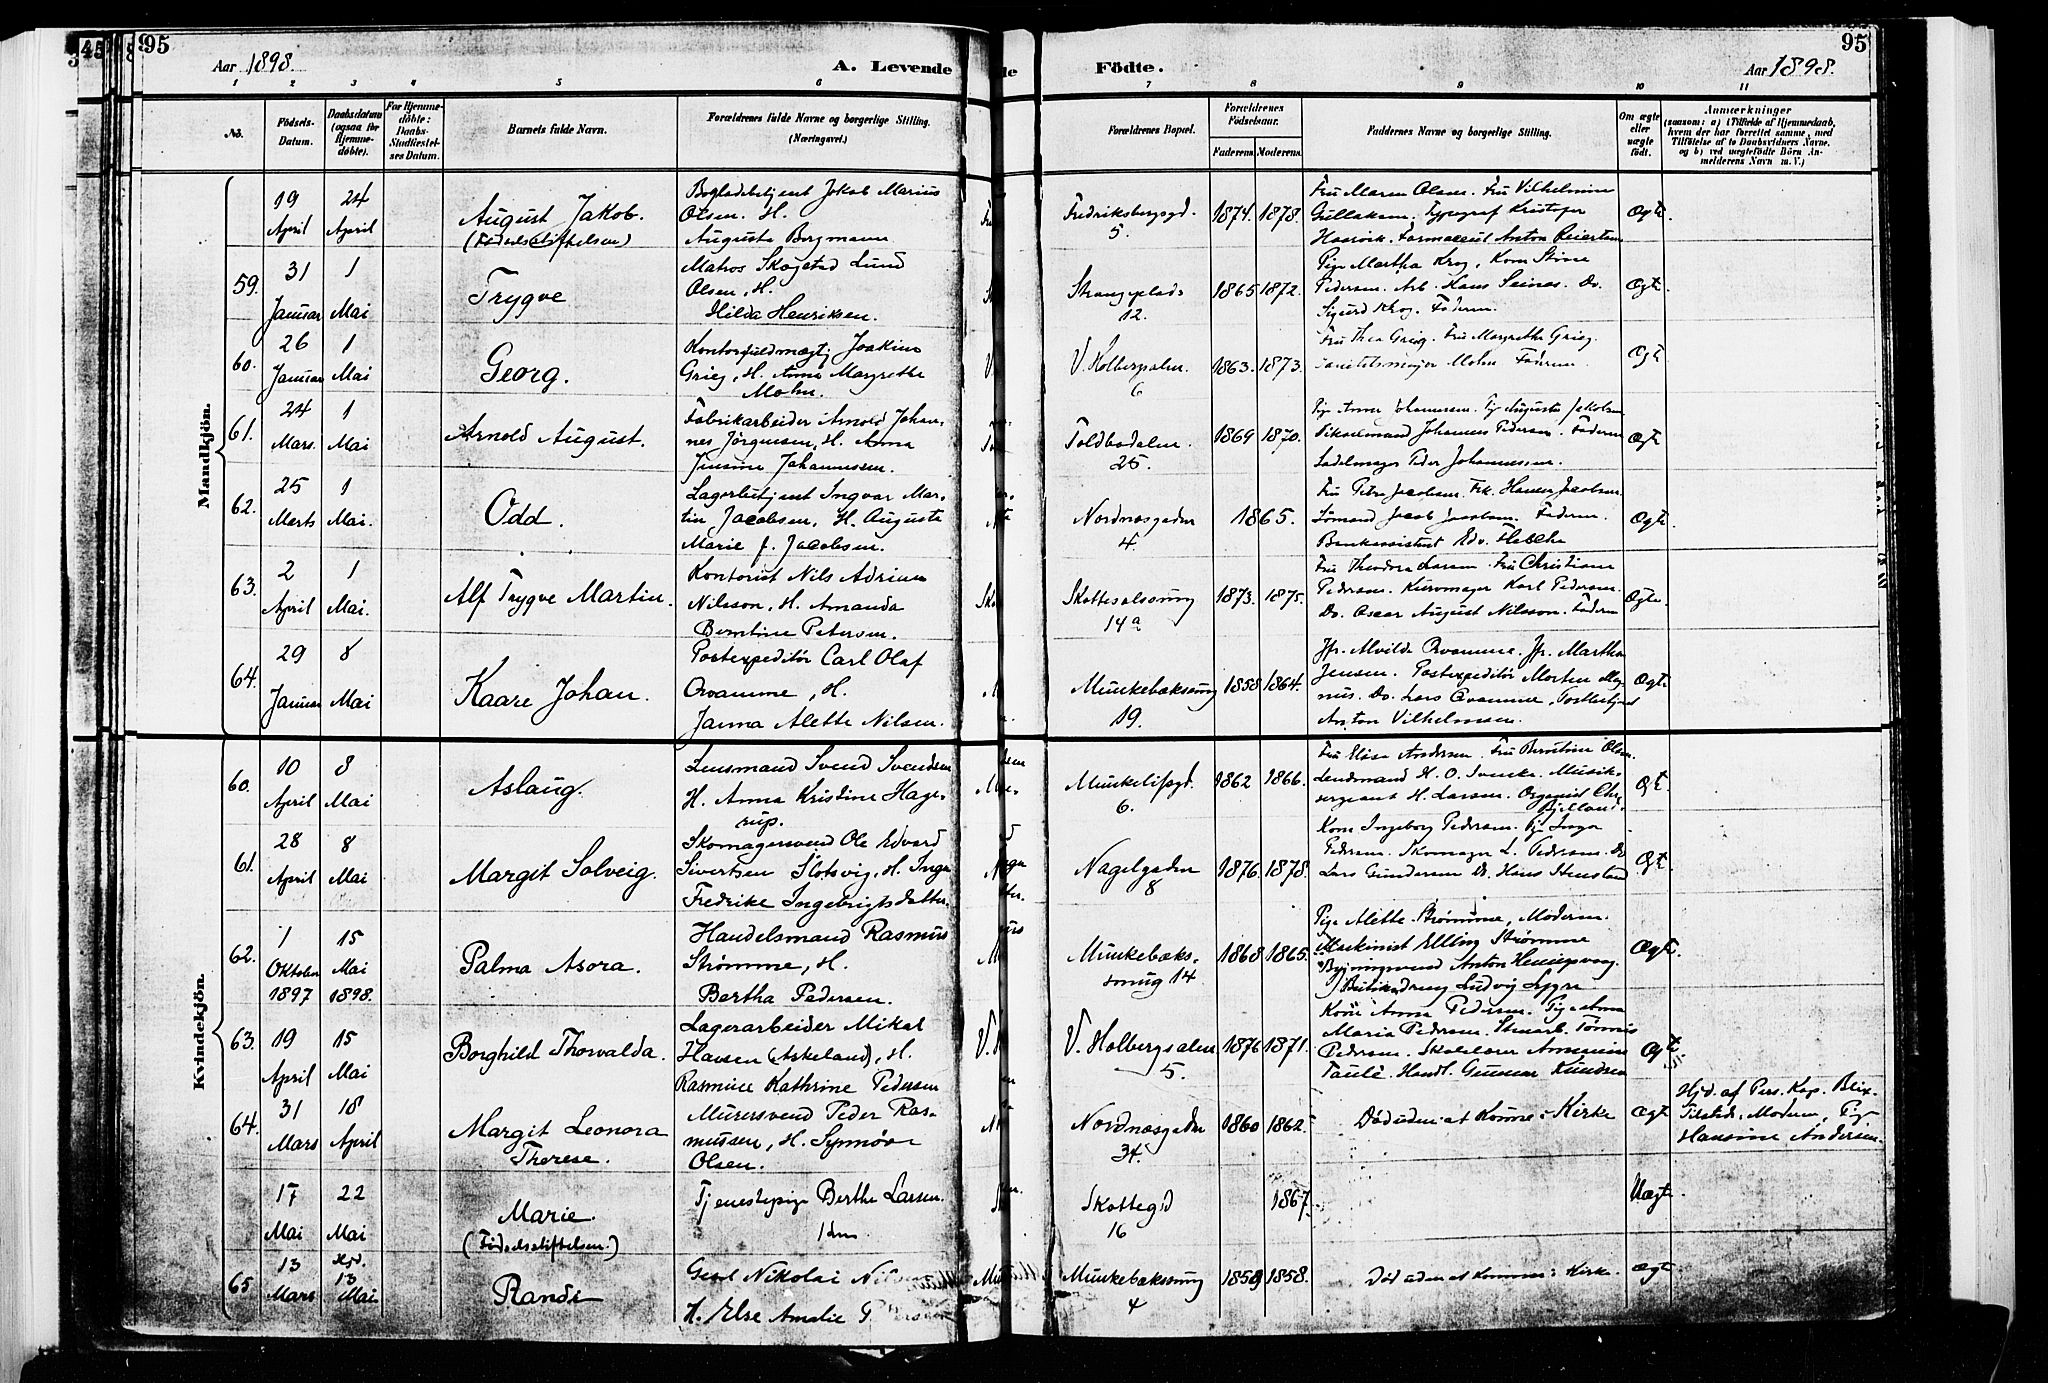 95
Aar 1898.
A. Levende
Födte.
Aar 1898.
95
1 2 3 4 5 6 7 8 9 10 11
No.
Födsels-
Datum.
Daabsdatum
(ogsaa for
Hjemme-
döbte).
For Hjemme-
döbte:
Daabs-
Stadfæstel-
ses Datum.
Barnets fulde Navn.
Forældrenes fulde Navne og borgerlige Stilling.
(Næringsvei.)
Forældrenes Bopæl.
Forældrenes
Födselsaar.
Faderens. Moderens.
Faddernes Navne og borgerlige Stilling.
Om ægte
eller
uægte
födt.
Anmærkninger
(saasom: a) i Tilfælde af Hjemmedaab,
hvem der har forrettet samme, med
Tilföielse af to Daabsvidners Navne.
og b) ved uægtefödte Börn An-
melderens Navn m. V.)
Mandkjön.
19 April
24 April
August Jakob.
(Fødselsstiftelsen)
Bogladebetjent Jokob Marius
Olsen. H.
Augusta Bergmann
Fredriksbergsgd.
5.
1874. 1878.
Fru Maren Olsen. Fru Vilhelmine
Typograf Kristofer
Farmaceut Anton Reiertsen
Ægte
59.
31 Januar
1 Mai
Trygve
Matros Skogstad Lund
Olsen, H.
Hilda Henriksen.
Strangeplads
12.
1865 1872.
Pige Martha Krog, Kone Stine
Pedersen. Arb. Hans Seines. Do.
Sigurd Krog. Faderen.
Ægte.
60.
26 Januar
1 Mai
Georg.
Kontorfuldmægtig Joakim
Grieg, H. Anna Margrethe
Mohn.
V. Holbergsalm.
6
1863. 1873.
Fru Thea Grieg. Fru Margrethe Grieg.
Sanitetsmajor Mohn Faderen
Ægte
61.
24 Mars.
1 Mai
Arnold August.
Fabrikarbeider Arnold Johan-
nes Jørgensen, H. Anna
Jensine Johannessen.
Toldbodalm.
25.
1869 1870.
Pige Anna Johannesen. Pig Augusta Jakobsen
Johannes Pedersen. Faderen
Sadelmager Peder Johannessen.
Ægte
62.
25 Marts
1 Mai.
Odd.
Lagerbetjent Ingvar Mar-
tin Jacobsen, H. Augusta
Marie f. Jacobsen.
Nordnæsgaden
4.
1865.
Fru Petra Jacobsen. Frk. Hanna Jacobsen
Sømand Jacob Jacobsen. Faderen.
Bankassistent Edv.
Ægte.
63.
2 April
1 Mai.
Alf Trygve Martin.
Kontorist Nils Adrian
Nilsson, H. Amanda
Berntine Petersen.
Skottesalssmug
14a
1873. 1875.
Fru Theodora Larsen. Fru Christiane
Pedersen. Kurvmager Karl Pedersen.
Do. Oscar August Nilsson. Faderen
Ægte.
64.
29 Januar
8 Mai
Kaare Johan.
Postexpeditör Carl Olaf
Qvamme, H.
Janna Alette Nilsen.
Munkebæksmug
19.
1858 1864.
Jfr. Alvilde Qvamme. Jfr. Martha
Jensen. Postexpeditör Morten Mag-
nus. Do. Lars Qvamme, Postbetjent
Anton Vilhelmsen.
Ægte
Kvindekjön.
60.
10 April
8 Mai
Aslaug.
Lensmand Svend Svendsen
H. Anna Kristine Hage-
rup.
Munkelifsgd.
6.
1862 1866.
Fru Elisa Andersen. Fru Berntine Olsen.
Lendsmand H. O. Musik-
sergeant H. Larsen. Organist Chr.
Bjelland.
Ægt.
61.
28 April
8 Mai
Margit Solveig.
Skomagersvend Ole Edvard
Sivertsen Slotsvig, H. Inga
Fredrike Ingebrigtsdatter.
Nagelgaden
8
1876. 1878.
Kone Ingeborg Pedersen. Pige Inga
Pedersen. Skomager L. Pedersen. Do
Lars Gundersen Do. Hans Stensland
Ægt.
62.
1 Oktober 1897
15 Mai 1898.
Palma Asora.
Handelsmand Rasmus
Strømme, H.
Bertha Pedersen.
Munkebæks-
smug 14
1868 1865.
Pige Alette Strømme, Moderen.
Maskinist Elling Strømme
Anton
Ludvig Lygre
Ægt.
63.
19 April
15 Mai
Borghild Thorvalda.
Lagerarbeider Mikal
Hansen (Askeland), H.
Rasmine Kathrine Pedersen
V. Holbergsalm
5.
1876 1871.
Kone Anna Pedersen. Pige Anna
Maria Pedersen. Stuearb. Tönnes
Pedersen. Skolelærer
Handl. Gunnar Knudsen
Ægte
64.
31 Mars
18 April
Margit Leonora
Therese.
Murersvend Peder Ras-
mussen, H. Synnøve
Olsen.
Nordnæsgaden
34.
1860 1862.
Død uden at komme i Kirke
Ægt
Hjd. af Pers. Kap. Blix.
Tilstede: Moderen, Pige
Hansine Andersen.
17 Mai
22 Mai
Marie.
(Fødselsstiftelsen.)
Tjenestepige Berthe Larsen.
Skottegd
16
1867.
Uægte.
65
13 Mars
Hjd.
13 Mai
Randi
Nikolai
H. Else Amalie
Munkebæksmug
4
1859 1858.
Død uden at komme i Kirke.
Ægte